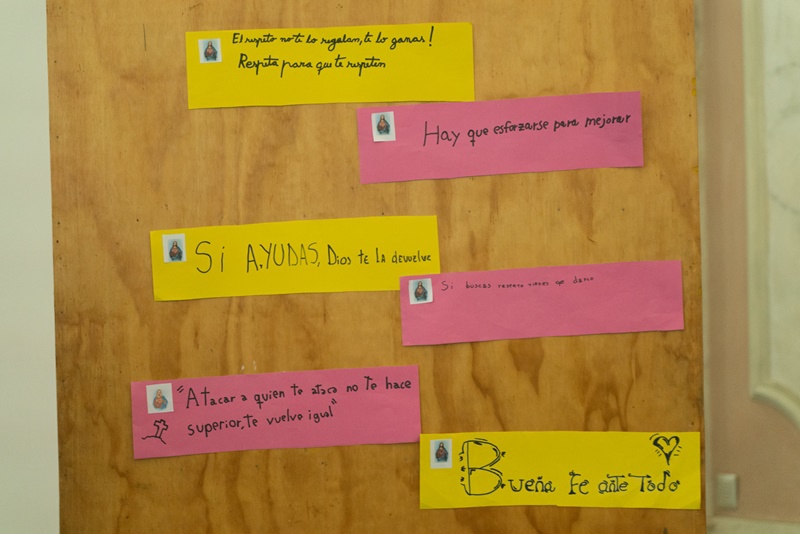 El respeto no te lo regalan, te lo ganas!
Respeta para que te respeten
Hay que esforzarse para mejorar
Si AYUDAS, Dios te la devuelve
Si buscas respeto tienes que darlo
"Atacar a quien te ataca no te hace
superior, te vuelve igual"
Buena fe ante Todo